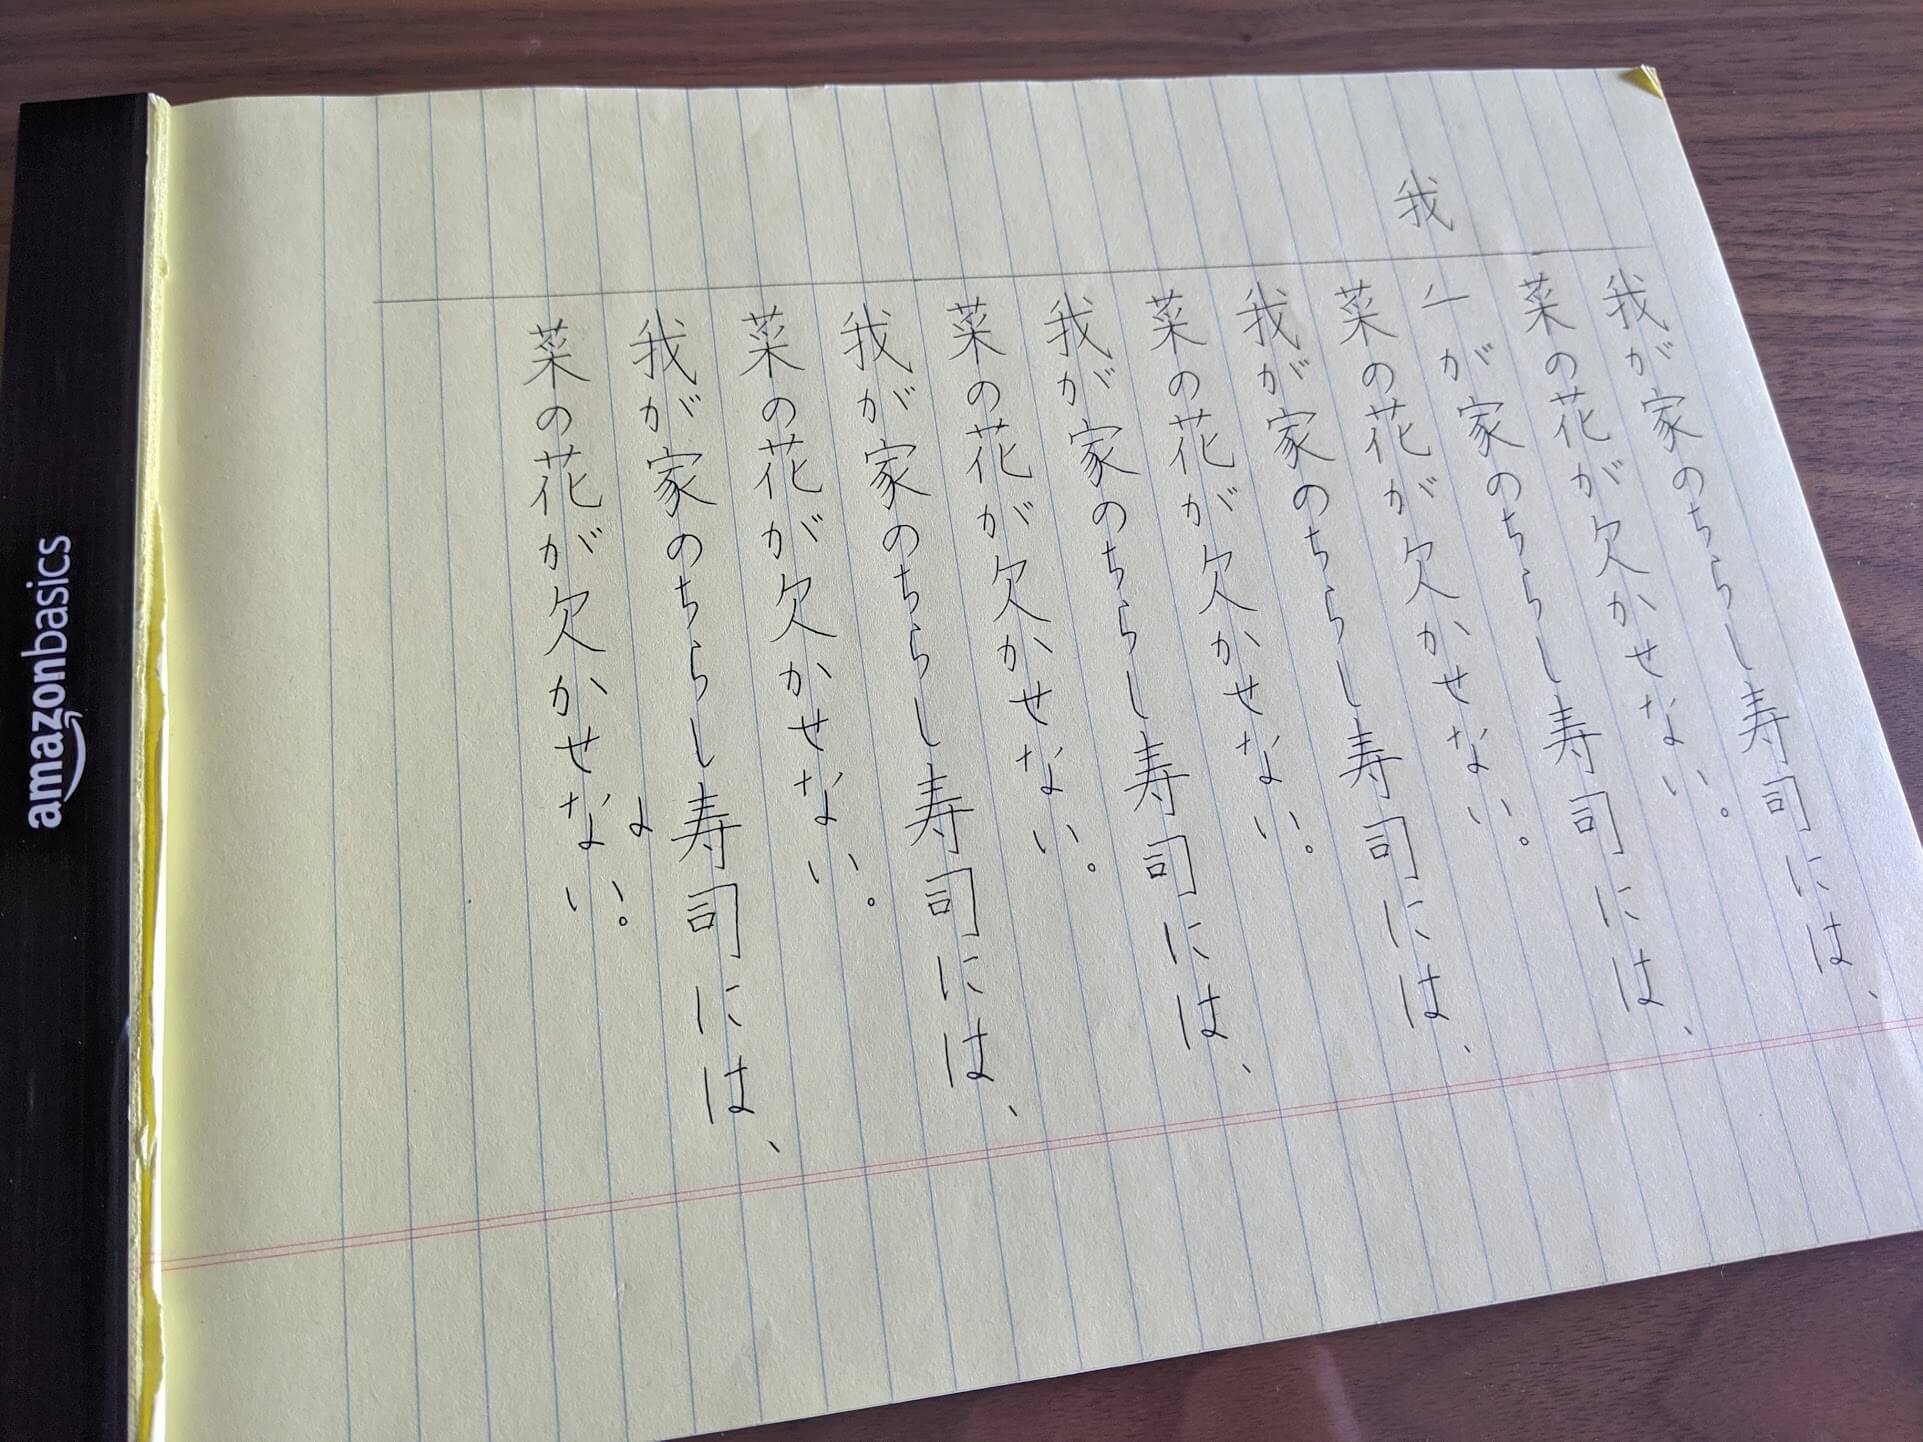 我が家のちらし寿司には、
菜の花が欠かせない。
我
が家のちらし寿司には、
菜の花が欠かせない。
我が家のちらし寿司には、
菜の花が欠かせない。
我が家のちらし寿司には、
菜の花が欠かせない。
我が家のちらし寿司には、
菜の花が欠かせない。
我が家のちらし寿司には、
菜の花が欠かせない。
amazonbasics